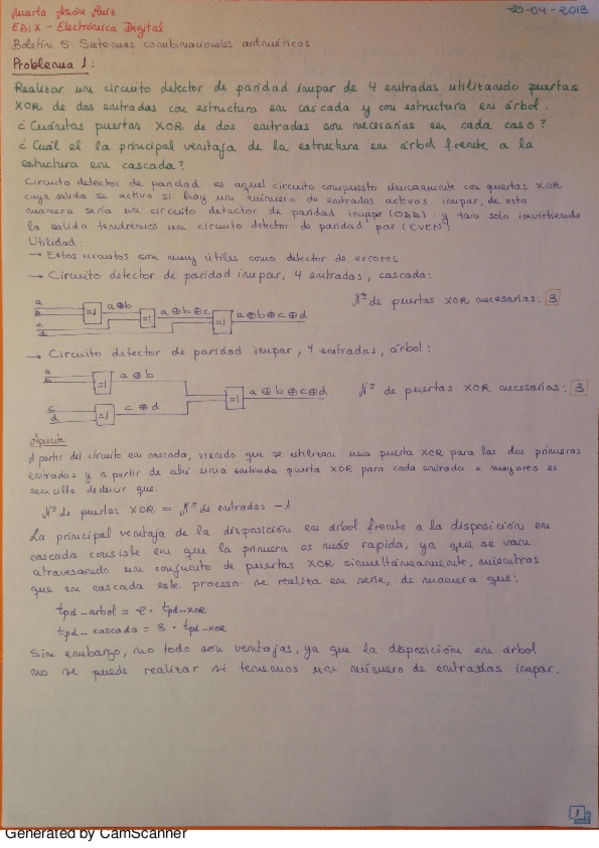 23-04-2013
EBIX - Electrónica Digital
Boletín 5: Sistemas combinacionales aritméticos
Problema 1:
Realizar un circuito detector de paridad impar de 4 entradas utilizando puertas
XOR de dos entradas con estructura en cascada y con estructura en árbol.
¿Cuántas puertas XOR de dos entradas son necesarias en cada caso?
¿Cuál el la principal ventaja de la estructura en árbol frente a la
estructura en cascada?
Circuito detector de paridad: es aquel circuito compuesto únicamente con puertas XOR
cuya salida se activa si hay un número de entradas activos impar, de esta
manera sería un circuito detector de paridad impar (ODD) y tan solo invirtiendo
la salida tendremos un circuito detector de paridad par (EVEN).
Utilidad:
→ Estos circuitos son muy útiles como detector de errores
→ Circuito detector de paridad impar, 4 entradas, cascada:
Nº de puertas XOR necesarias: 3
a
b
=1
a⊕b
=1
a⊕b⊕c
=1
a⊕b⊕c⊕d
→ Circuito detector de paridad impar, 4 entradas, árbol:
a
b
=1
a⊕b
=1
a⊕b⊕c⊕d
Nº de puertas XOR necesarias: 3
c
d
=1
c⊕d
Apunte
A partir del circuito en cascada, viendo que se utilizan una puerta XOR para las dos primeras
entradas y a partir de ahí una puerta XOR para cada entrada es
sencillo deducir que:
Nº de puertas XOR = Nº de entradas - 1
La principal ventaja de la disposición en árbol frente a la disposición en
cascada consiste en que la primera es más rapida, ya que se van
atravesando un conjunto de puertas XOR simultáneamente, mientras
que en cascada este proceso se realiza en serie, de manera que:
tpd-arbol = 2 · tpd-XOR
tpd-cascada = 3 · tpd-XOR
Sin embargo, no todo son ventajas, ya que la disposición en árbol
no se puede realizar si tenemos un número de entradas impar.
1
Generated by CamScanner